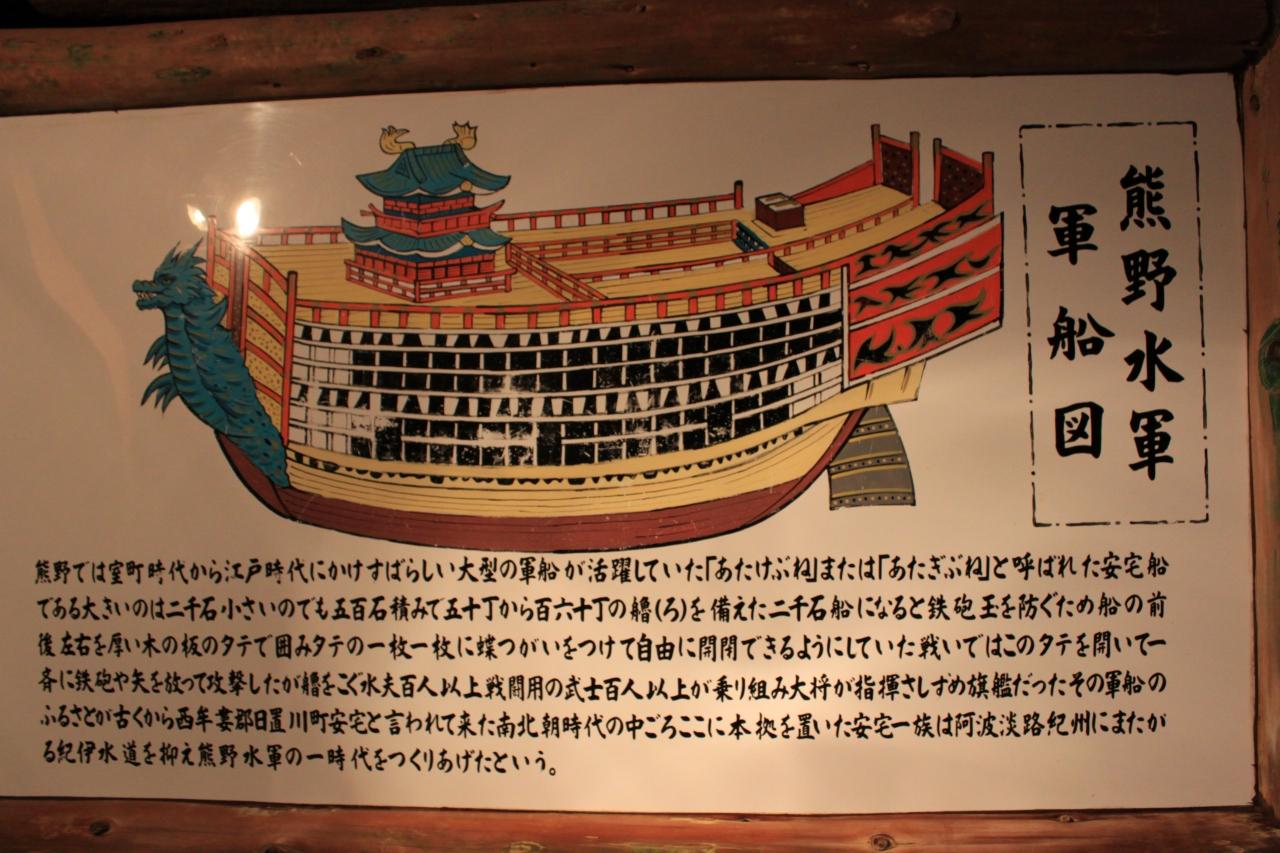 熊野水軍
軍船図
熊野では室町時代から江戸時代にかけすばらしい大型の軍船が活躍していた「あたけぶね」または「あたぎぶね」と呼ばれた安宅船
である大きいのは二千石小さいのでも五百石積みで五十丁から百六十丁の艪(ろ)を備えた二千石船になると鉄砲王を防ぐため船の前
後左右を厚い木の板のタテで囲みタテの一枚一枚に蝶つがいをつけて自由に開閉できるようにしていた戦いではこのタテを開いて一
斉に鉄砲や矢を放って攻撃したが艪をこぐ水夫百人以上戦闘用の武士百人以上が乗り組み大将が指揮さしずめ旗艦だったその軍船の
ふるさとが古くから西牟婁郡日置川町安宅と言われて来た南北朝時代の中ごろここに本拠を置いた安宅一族は阿波淡路紀州にまたが
る紀伊水道を抑え熊野水軍の一時代をつくりあげたという。